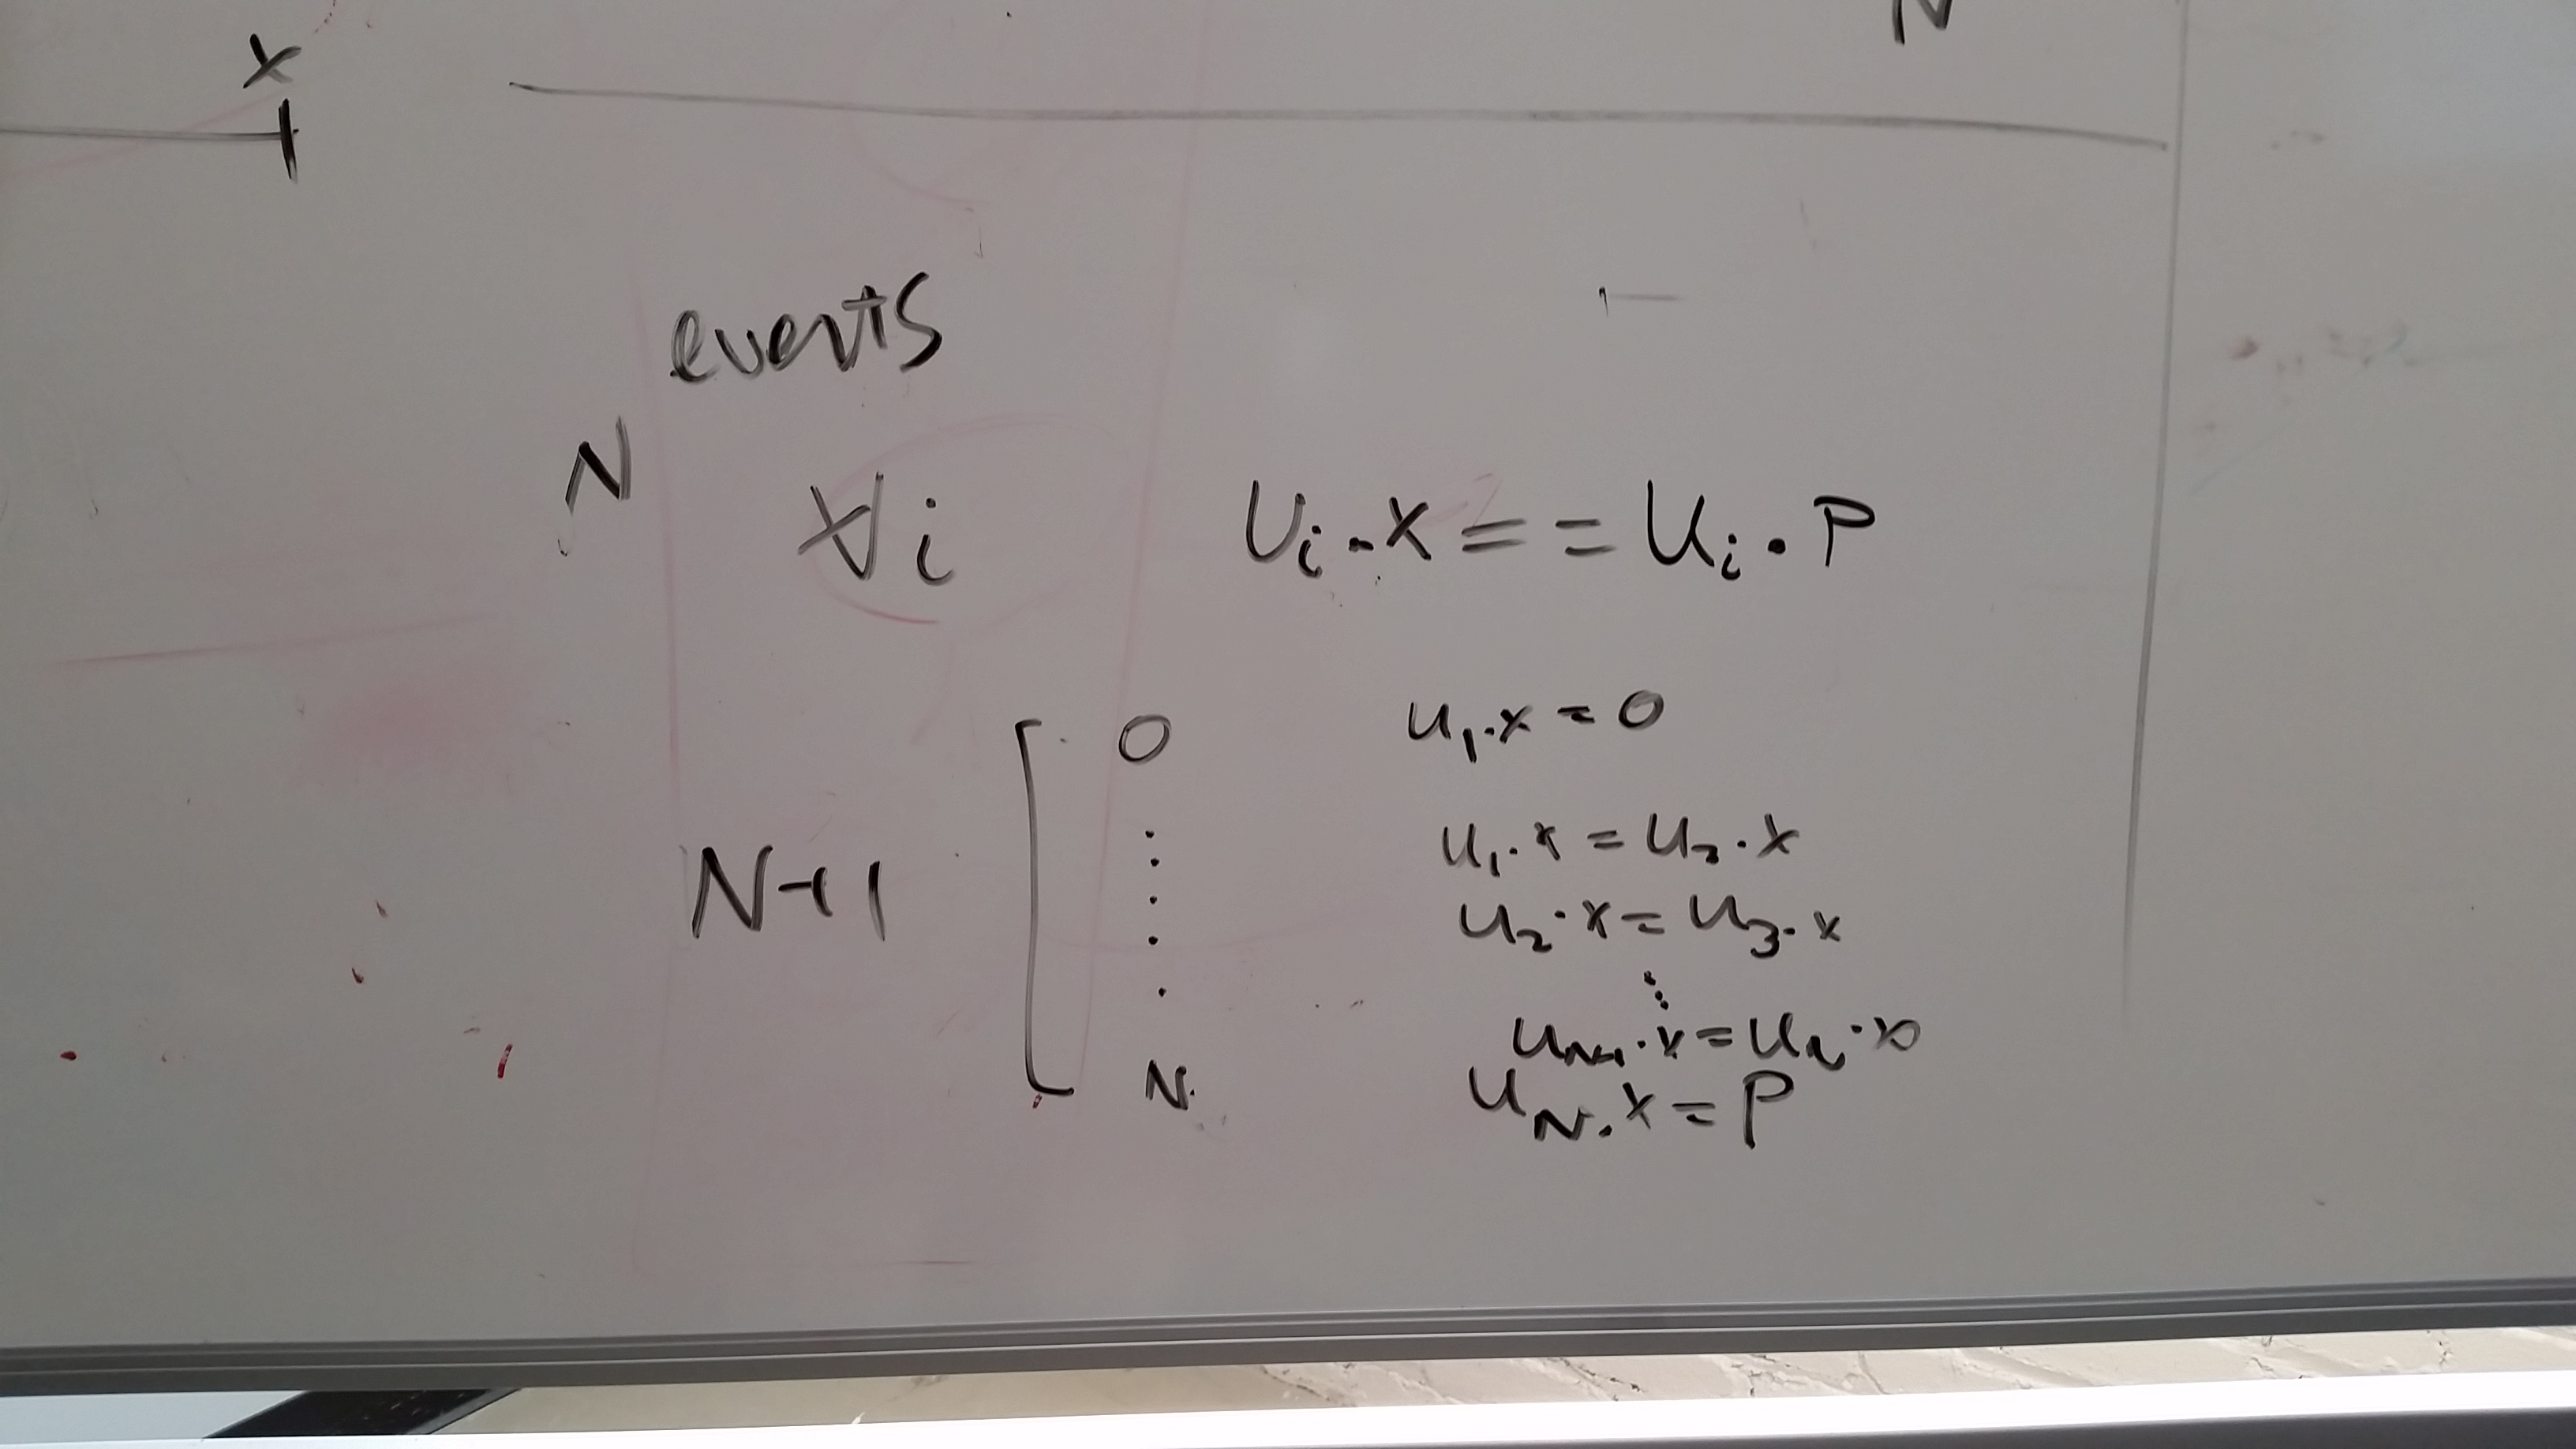 x
N
events
N
∀i
Ui.x == Ui.P
N+1
0
N.
u1.x = 0
u1.x = u2.x
u2.x = u3.x
⋮
uN-1.x = uN.x
uN.x = P